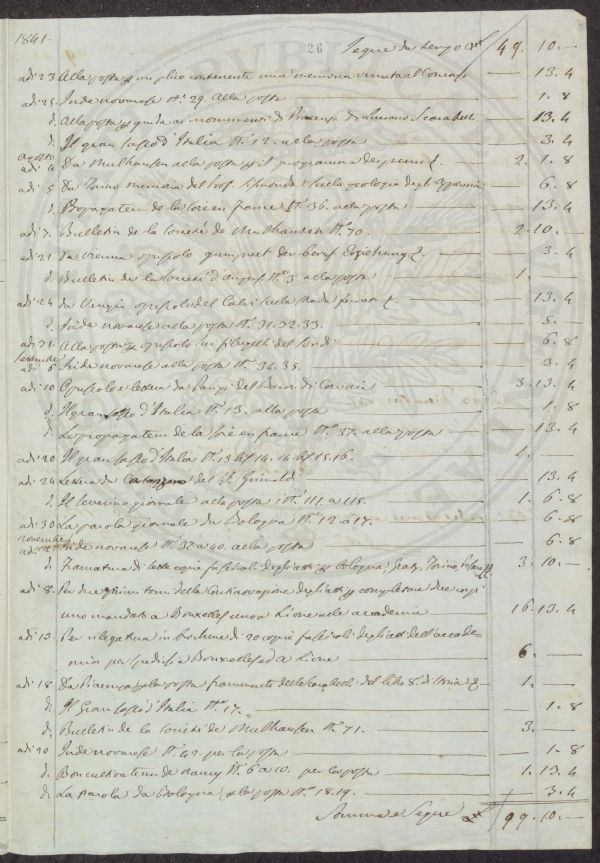 1841.
26
Segue da tergo 49. 10. —
adi 23 Alla posta un plico contenente una memoria venuta al Concorso 13. 4
adi 25. Inde novarese N.° 29. Alla posta 1. 8
d. Alla posta guida ai monumenti di Piacenza di Luciano Scarabelli 13. 4
d. Il gran Sasso d'Italia N.° 12. alla posta 3. 4
agosto
adi 4 Da Mulhausen alla posta il programma dei premi 2. 1. 8
adi 5 Da Torino memoria del Prof. Sismonda sulla geologia degli 6. 8
d. Propagateur de la Soie en france N.° 36. alla posta 13. 4
adi 7. Bulletin de la Société de Mulhausen N.° 70. 2. 10. —
adi 21 Da Vienna opuscolo 3. 4
d. Bulletin de la Société d'Angers N.° 3 alla posta 1. —
adi 24 Da opuscoli del sulla 13. 4
d. Inde novarese alla posta N.° 31. 32. 33. 5. —
adi 31. Alla posta opuscolo sui del 6. 8
settembre
adi 6 Inde novarese alla posta N.° 34. 35. 3. 4
adi 10 Opuscolo e lettera da Parigi del Baron di 3. 13. 4
d. Il gran Sasso d'Italia N.° 13. alla posta 1. 8
d. Le propagateur de la Soie en france N.° 37. alla posta 13. 4
adi 20 Il gran Sasso d'Italia N.° 13 bis 14. 14 bis 15. 16. 1. —
adi 24 Lettera da Catanzaro del S. Grimaldi 13. 4
d. Il giornale alla posta i N.° 111. a 115. 1. 6. 8
adi 30 La parola giornale di Bologna N.° 12. a 17. 6. 8
novembre
adi Inde novarese N.° 37. a 40. alla posta 6. 8
d. di sette copie fascicoli degli atti Bologna, Torino, 3. 10. —
adi 8. Per due primi tomi della Continovazione degli atti completare due corpi
uno mandato a Bruxelles uno a Lione alle accademie 16. 13. 4
adi 13 Per rilegatura in brochure di 20 copie fascicoli degli atti dell'accade-
mia per spedirsi a Bruxelles ed a Lione 6. —
adi 18 Da Piacenza alla posta frammento dello Scarabelli del libro 8.° di 1. —
d. Il Gran Sasso d'Italia N.° 17. 1. 8
d. Bulletin de la Société de Mulhausen N.° 71. 3. —
adi 20 Inde novarese N.° 42. per la posta 1. 8
d. Bon cultivateur de Nancy N.° 6 a 10. per la posta 1. 13. 4
d. La Parola da Bologna per la posta N.° 18. 19. 3. 4
Somma e Segue 99. 10. —